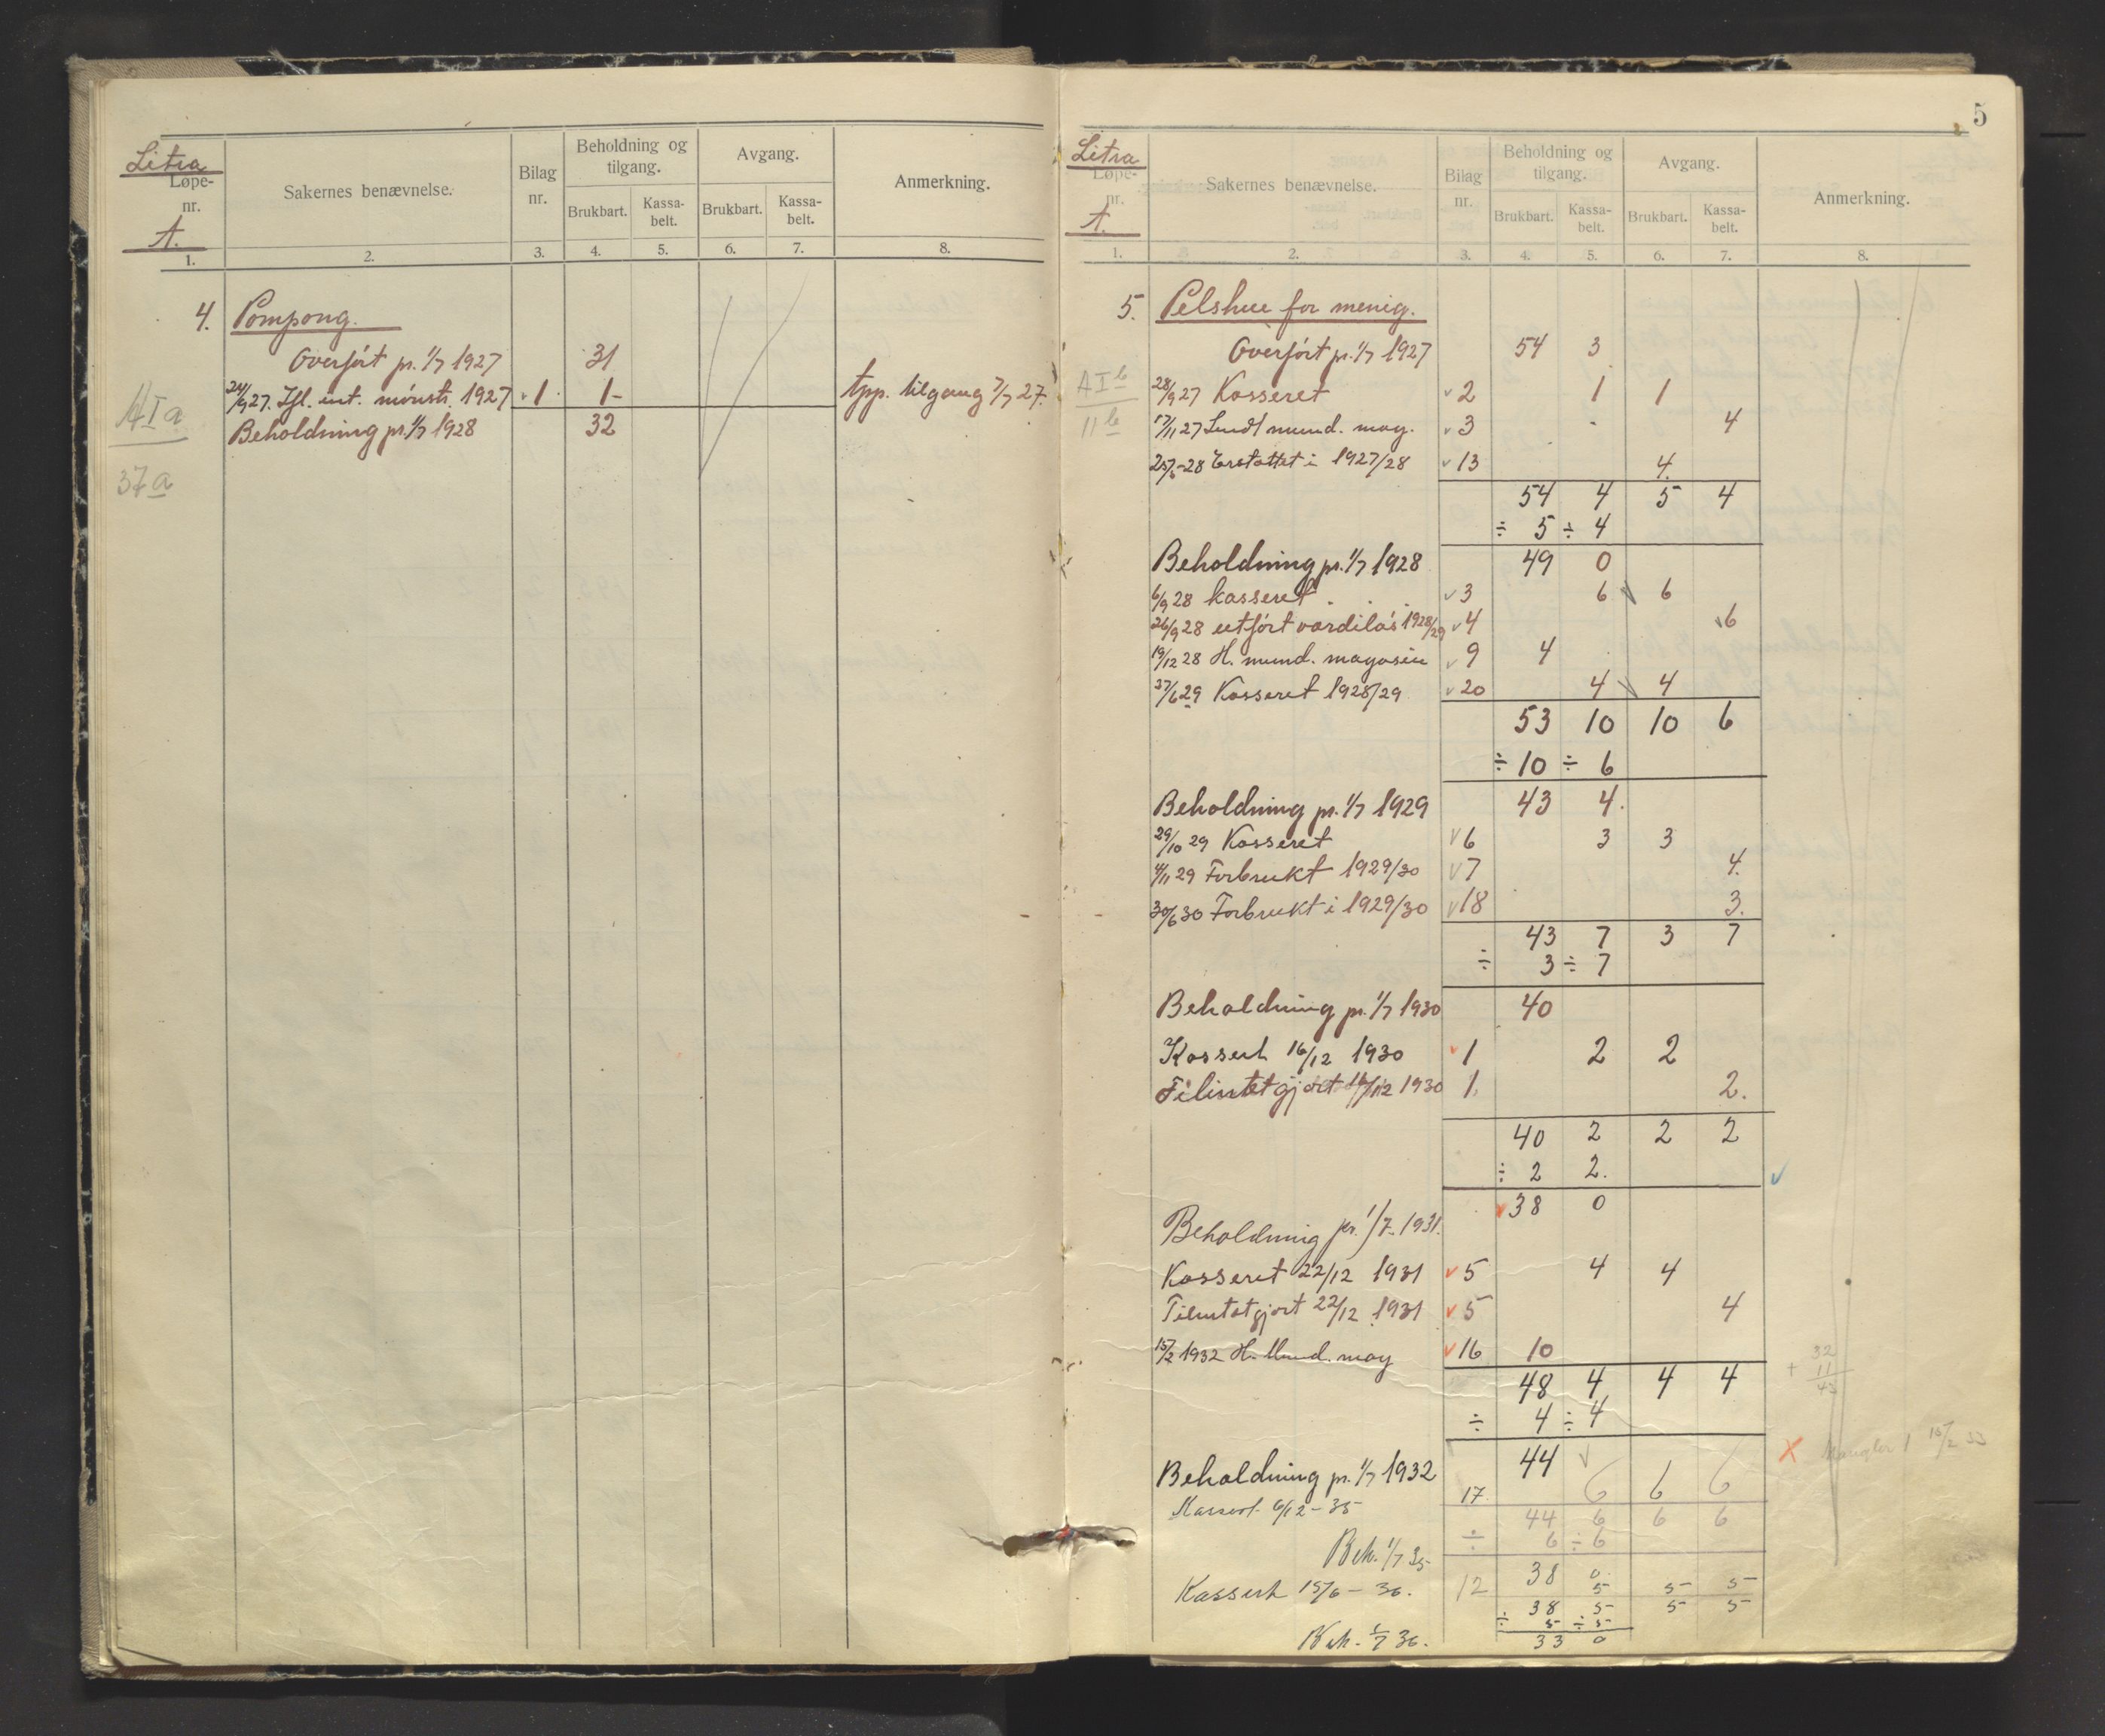 Litra
Løpe-
nr.
A.
Sakernes benævnelse.
Bilag
nr.
Beholdning og
tilgang.
Avgang.
Anmerkning.
Brukbart.
Kassa-
belt.
Brukbart.
Kassa-
belt.
1. 2. 3. 4. 5. 6. 7. 8.
4. Pompong.
Overført pr. 1/7 1927 31
24/9 27. Ifl. int. mønstr. 1927 1 1 - tgang 7/7 27.
Beholdning pr. 1/7 1928 32
A I a
37 a
5
Litra
Løpe-
nr.
A.
Sakernes benævnelse.
Bilag
nr.
Beholdning og
tilgang.
Avgang.
Anmerkning.
Brukbart.
Kassa-
belt.
Brukbart.
Kassa-
belt.
1. 2. 3. 4. 5. 6. 7. 8.
5. Pelshue for menig.
Overført pr. 1/7 1927 54 3
A I b
28/9 27 Kasseret 2 1 1
11 b
17/11 27 mund. mag. 3 4
-28 Erstattet i 1927/28 13 4.
54 4 5 4
÷ 5 ÷ 4
Beholdning pr. 1/7 1928 49 0
6/9 28 kasseret 3 6 6
26/9 28 utført 1928/29 4 6
19/12 28 H. mund. magasin 9 4
27/6 29 Kasseret 1928/29 20 4 4
53 10 10 6
÷ 10 ÷ 6
Beholdning pr. 1/7 1929 43 4.
29/10 29 Kasseret 6 3 3
4/11 29 Forbrukt 1929/30 7 4.
30/6 30 Forbrukt i 1929/30 18 3.
43 7 3 7
÷ 3 ÷ 7
Beholdning pr. 1/7 1930 40
Kassert 16/12 1930 1 2 2
Tilintetgjort 16/12 1930 1. 2.
40 2 2 2
÷ 2 2.
38 0
Beholdning pr. 1/7. 1931.
Kasseret 22/12 1931 5 4 4
Tilintetgjort 22/12 1931 5 4
15/2 1932 H. Mund. mag 16 10
48 4 4 4
÷ 4 ÷ 4
32
+ 11
43
Beholdning pr. 1/7 1932 44
x Mangler 1 15/2 33
Kassert 6/12 - 35 17 6 6 6
44 6 6 6
÷ 6 ÷ 6
Beh. 1/7 35 38 0
Kassert 15/6 - 36. 12 5 5 5
38 5 5 5
÷ 5 ÷ 5
Beh. 1/7 36. 33 0